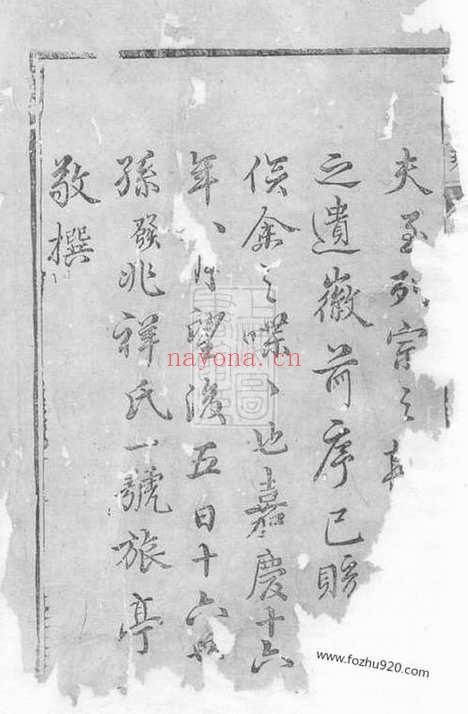 夫至列宗之
之遺徽前序已賅
俟余之喋々也嘉慶十六
年八月望後五日十六世
孫發兆祥氏一號旅亭
敬撰
nayona.cn
www.fozhu920.com